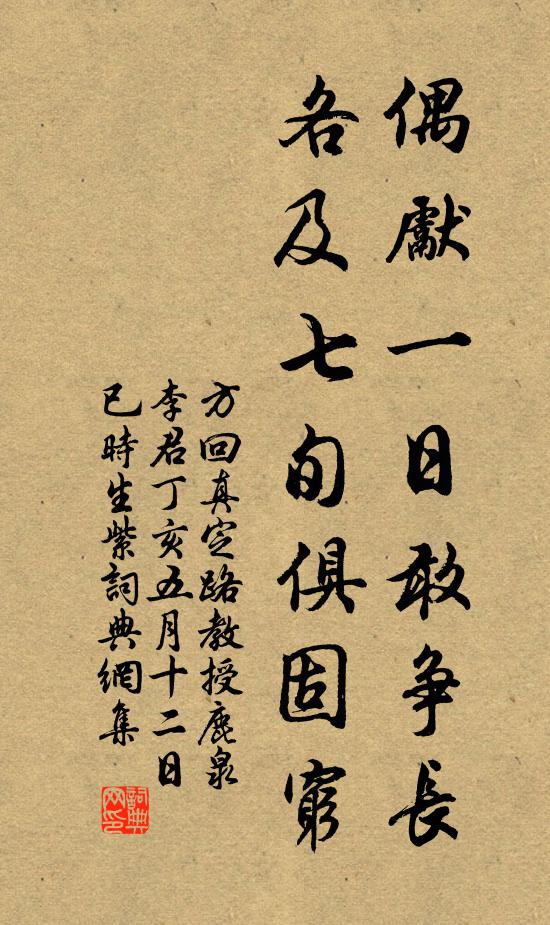 偶獻一日敢争長
各及七旬俱固窮
方回真定路教授鹿泉
李君丁亥五月十二日
巳時生紫詞典網集
詞典網印